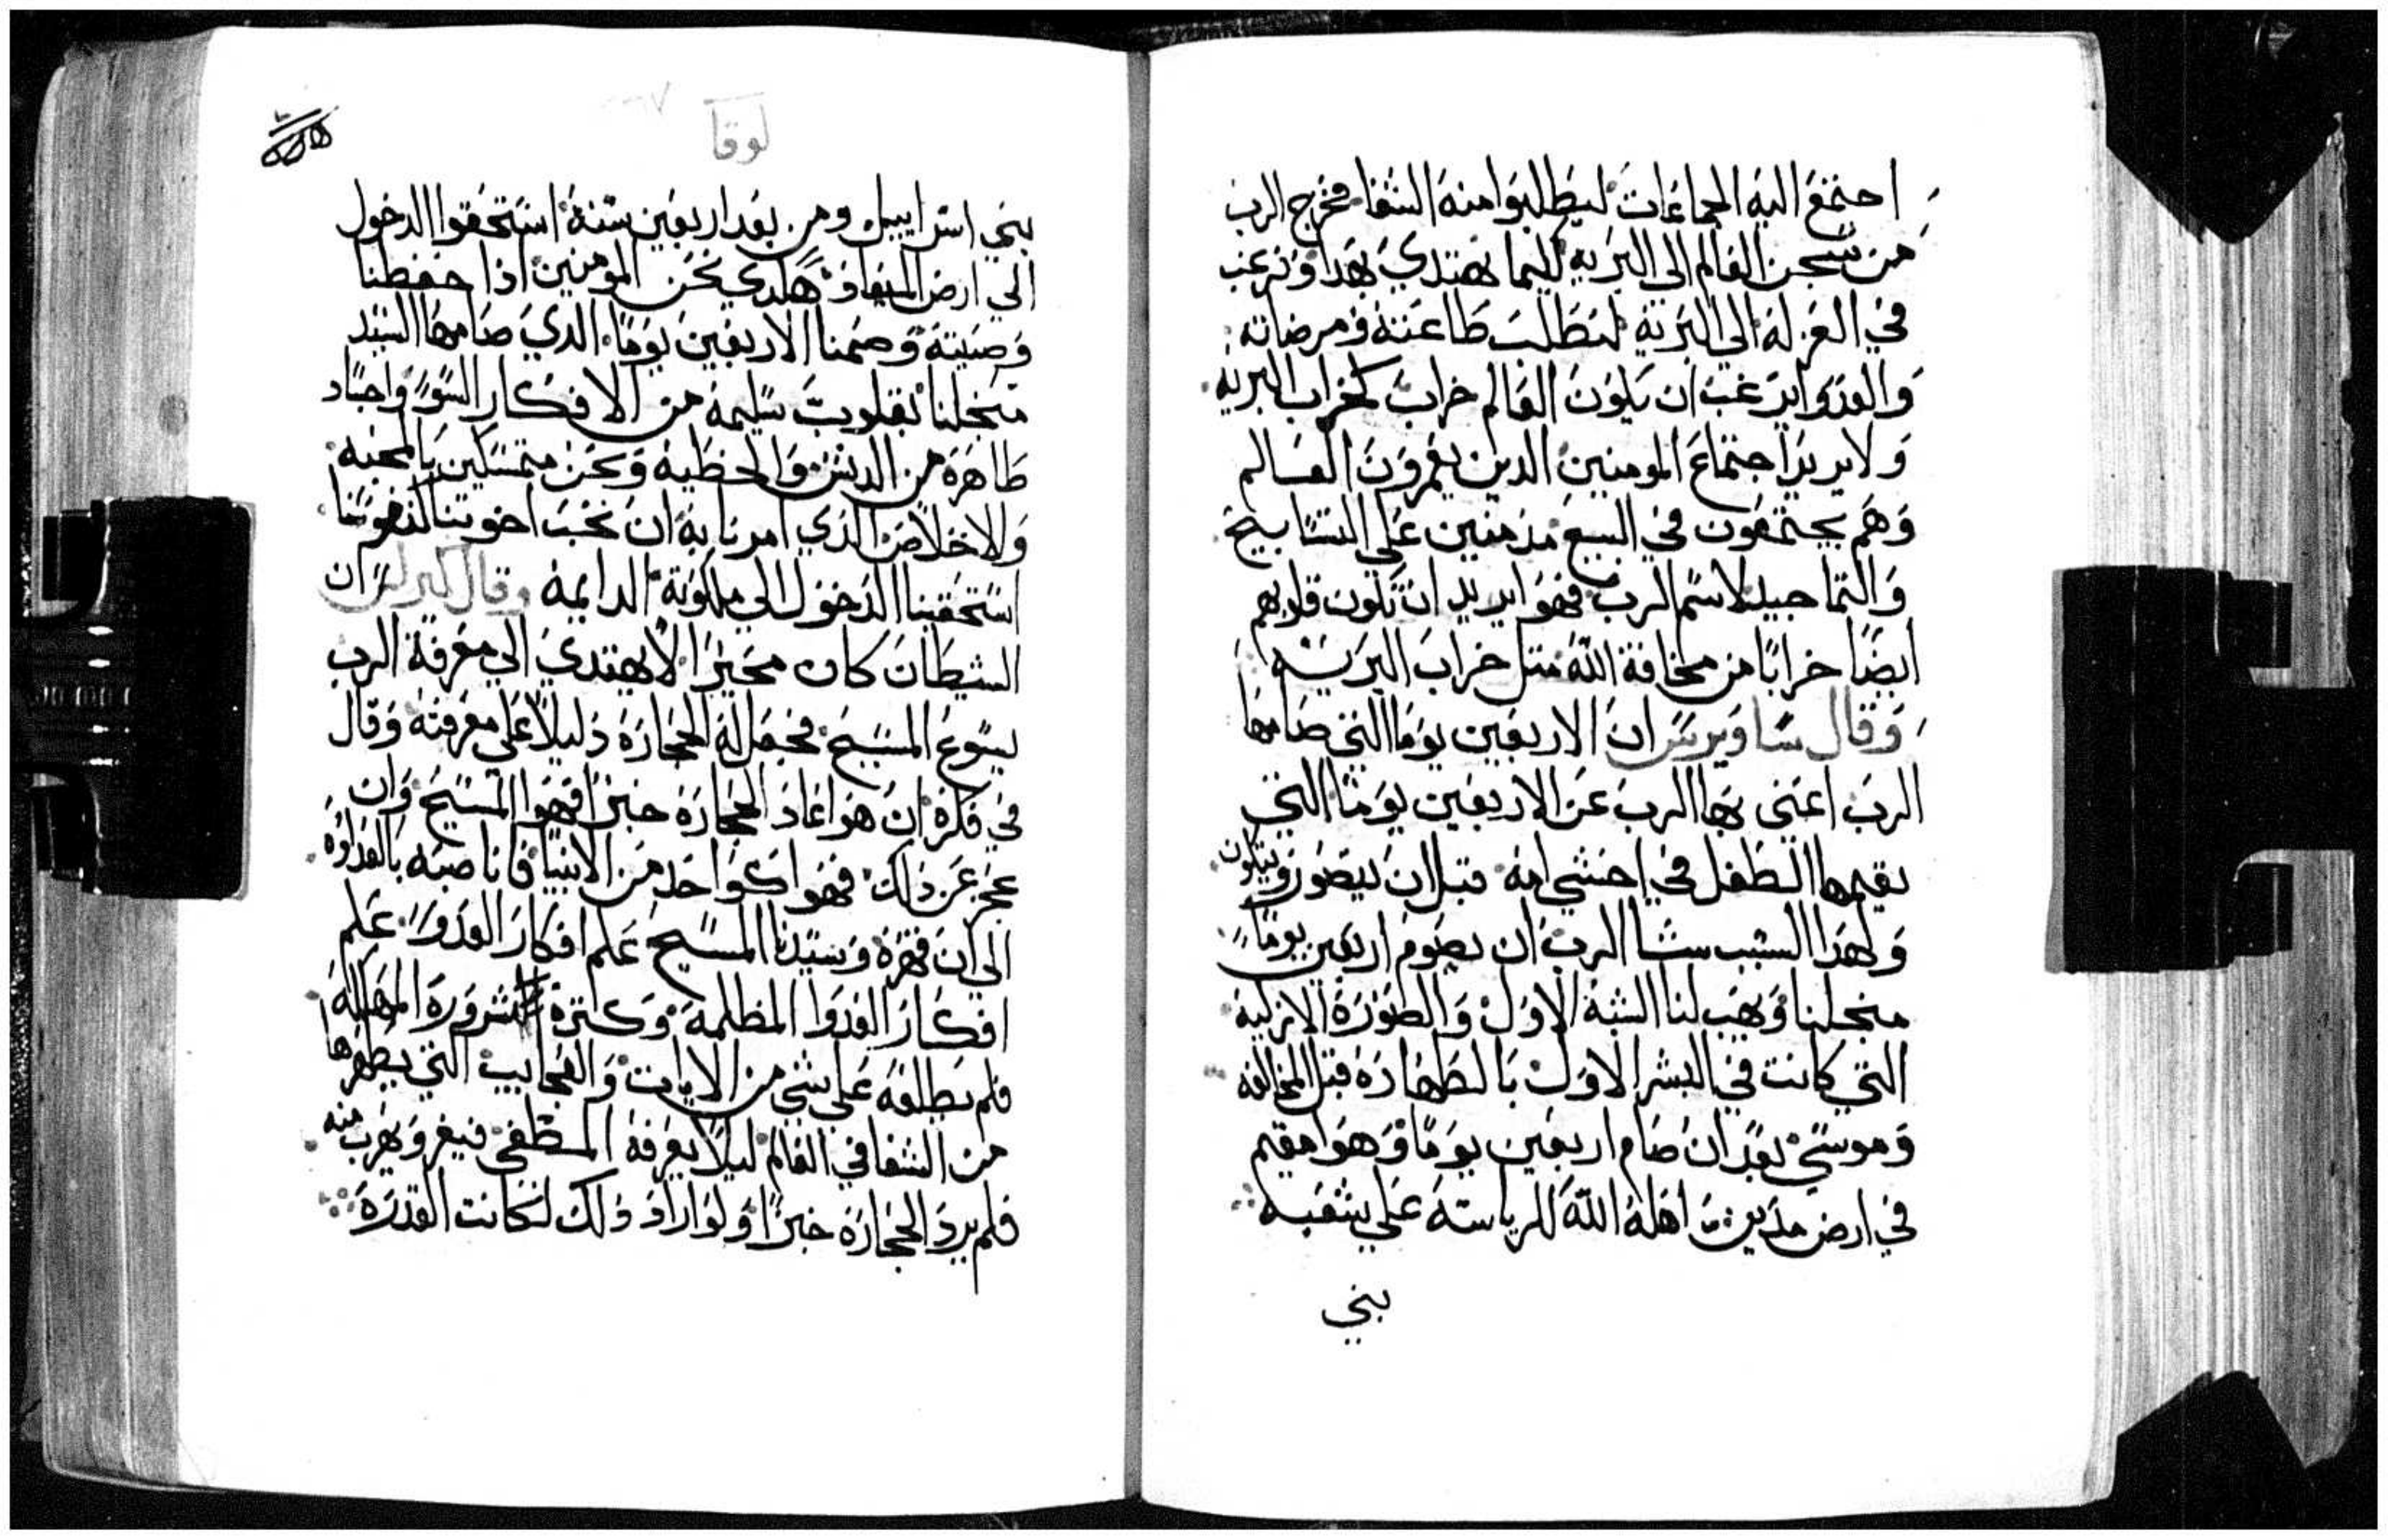 احتمع اليه الجماعات ليطلبوا منه الشفا فخرج الرب
من سجن العالم الي البريه لكيما نهتدي بهدا ونرغب
في العزله الي البريه لنطلب طاعته ومرضاته
والعدوا يرغب ان يكون العالم خراب كخراب البريه
ولا يريد اجتماع المومنين الدين يعمرون العالم
وهم يجتمعون في البيع مدمنين علي التسابيح
والتماجيد لاسم الرب فهوا يريد ان تكون قلوبهم
ايضا خرابا من مخافة الله متل خراب البريه
وقال ساويرس ان الاربعين يوما التي صامها
الرب اعني بها الرب عن الاربعين يوما التي
يقيمها الطفل في احشي امه قبل ان يتصور ويتكون
ولهدا السبب شا الرب ان يصوم اربعين يوما
منجلنا وهب لنا الشبه الاول والصوره الازليه
التي كانت في البشر الاول بالطهاره قبل المخالفه
وموسي بعد ان صام اربعين يوما وهوا مقيم
في ارض مدين اهله الله للرياسه علي شعبه
بني
لوقا
بني اسراييل ومن بعد اربعين سنة استحقوا الدخول
الي ارض الميعاد وهكدي نحن المومنين ادا حفظنا
وصيته وصمنا الاربعين يوما الدي صامها السيد
منجلنا بقلوب سليمه من الافكار السو واجساد
طاهره من الدنس والخطيه ونحن متمسكين بالمحبه
والاخلاص الدي امرنا به ان نحب اخوتنا كنفوسنا
استحقينا الدخول الي ملكوته الدايمه وقال كيرلس ان
الشيطان كان محيرا لا يهتدي الي معرفة الرب
يسوع المسيح فجعل له الحجاره دليلا علي معرفته وقال
في فكره ان هوا اعاد الحجاره خبزا فهوا المسيح وان
عجز عن دلك فهوا كواحد من الانبيا فاناصبه بالعداوه
الي ان قهره وسيدنا المسيح علم افكار العدوا علم
افكار العدوا المظلمه وكترة الشروره المهلكه
فلم يطلعه علي شي من الايات والعجايب التي يظهرها
من الشفا في العالم ليلا يعرفه فيفر ويهرب منه
فلم يرد الحجاره خبزا ولو اراد دلك لكانت القدره